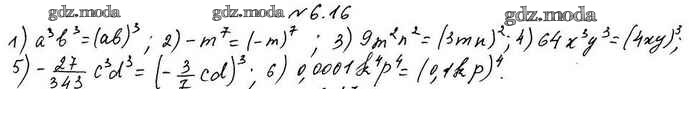 gdz.moda gdz.moda gdz.moda
№6.16
1) a³b³=(ab)³; 2) -m⁷=(-m)⁷; 3) 9m²n²=(3mn)²; 4) 64x³y³=(4xy)³;
5) -27/343 c³d³=(-3/7 cd)³; 6) 0,0001k⁴p⁴=(0,1kp)⁴.